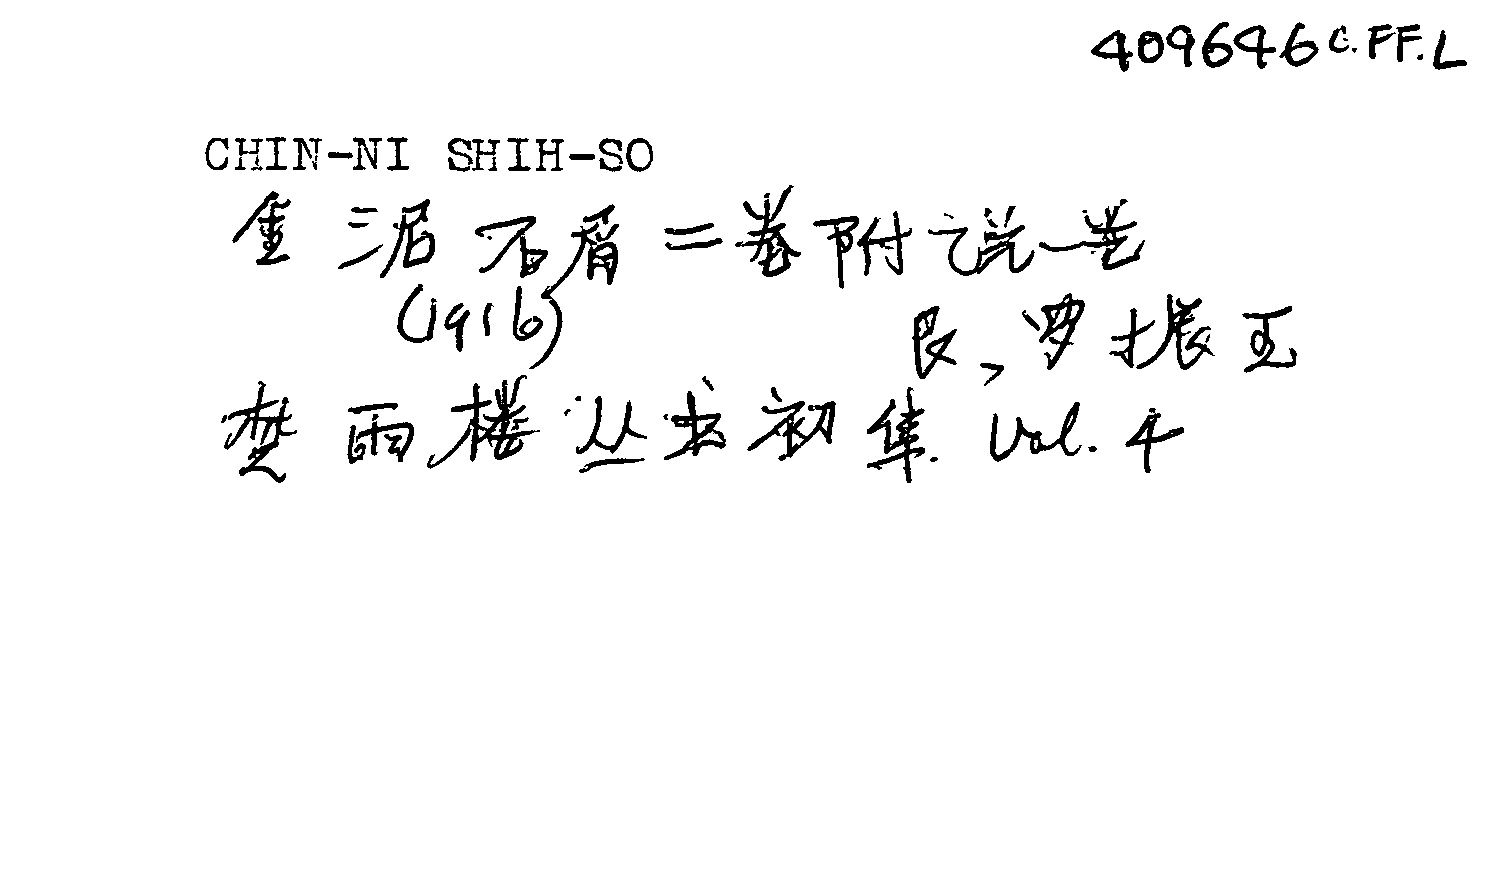 409646 C.FF.L
CHIN-NI SHIH-SO
金泥石屑二卷附说一卷
(1916) 民、罗振玉
楚雨楼丛书初集. Vol. 4